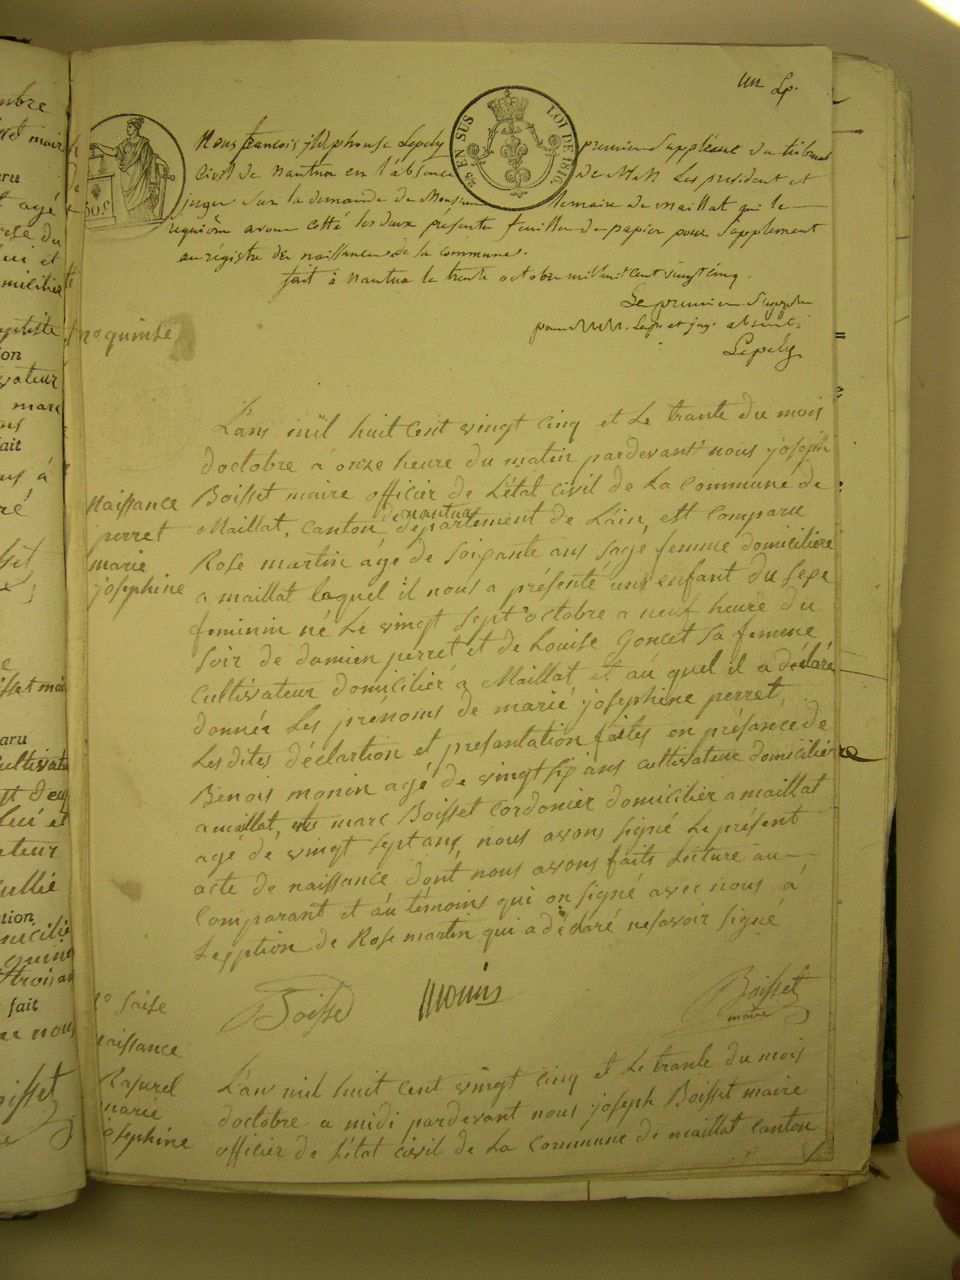 un Lp.
25 EN SUS
LOI DE 1816.
50 C
Nous françois ildephonse Lepely premier Suppléant du tribunal
Civil de nantua en l'absence de M.M. Les president et
juges sur la demande de Monsieur lemaire de maillat qui le
requière avons cotté les deux présente feuilles de papier pour Supplement
au régistre des naissances de la commune.
fait à nantua le trente octobre mil huit cent vingt cinq.
Le premier Suppl
pour MM. et juge absents
Lepely
no quinse
Naissance
perret
marie
josephine
L'ans mil huit Cent vingt cinq et Le trante du mois
doctobre a onze heure du matin pardevant nous joseph
Boisset maire officier de L'état Civil de La Commune de
Maillat, Canton de nantua département de Lain, est Comparu
Rose martin age de Soixante ans sage femme domicilière
a maillat laquel il nous a présenté uns enfant du Sexe
feminin né Le vingt sept octobre a neuf heure du
Soir de damien perret et de Louise Goncet sa femme
Cultivateur domicilié a Maillat et au quel il a déclaré
donnée Les prénoms de marié josephine perret,
Les dites déclartion et presantation faites en présance de
Benois monin agé de vingt six ans cultivateur domicilière
a maillat, et marc Boisset Cordonier domicilier a maillat
age de vingt sept ans, nous avons signé Le présent
acte de naissance dont nous avons faits Lecture au
Comparant et au témoins qui on signé avec nous à
Lexption de Rose martin qui a dédaré ne savoir signé
Boisset monin Boisset
maire
no saise
naissance
Rasurel
marie
josephine
L'an mil huit Cent vingt cinq et Le trante du mois
doctobre a midi pardevant nous joseph Boisset maire
officier de L'état Civil de La Commune de maillat Canton